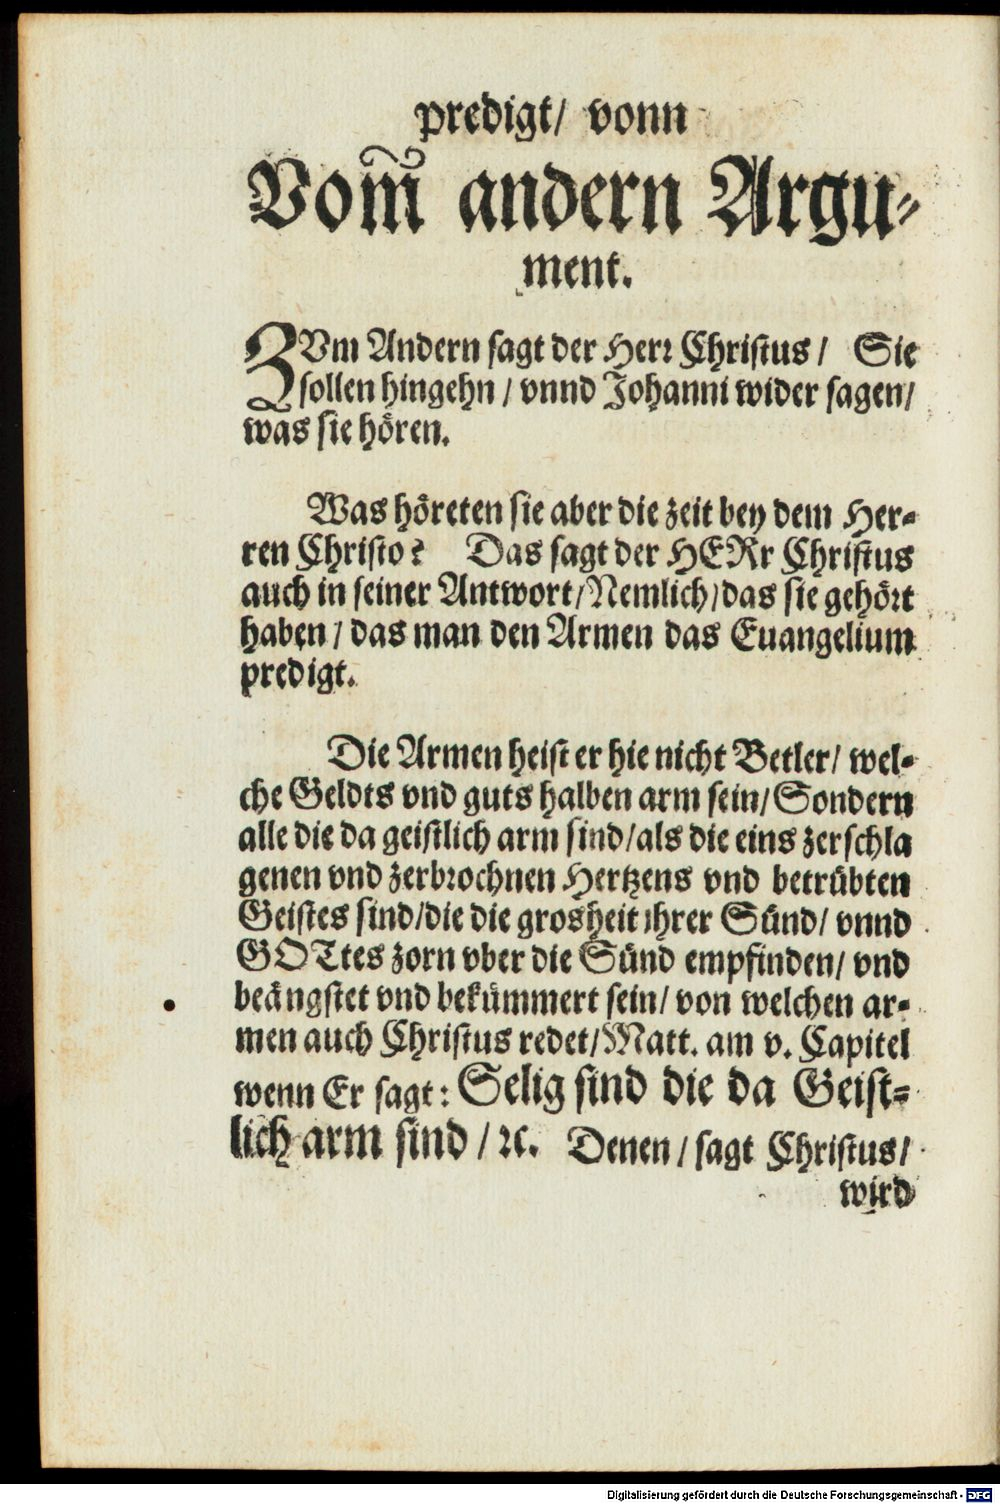 predigt/ vonn
Vom̃ andern Argu-
ment.
ZVm Andern sagt der Herr Christus / Sie
sollen hingehn / vnnd Johanni wider sagen/
was sie hören.
Was höreten sie aber die zeit bey dem Her-
ren Christo? Das sagt der HERr Christus
auch in seiner Antwort/Nemlich/das sie gehört
haben / das man den Armen das Euangelium
predigt.
Die Armen heist er hie nicht Betler/ wel-
che Geldts vnd guts halben arm sein/Sondern
alle die da geistlich arm sind/als die eins zerschla
genen vnd zerbrochnen Hertzens vnd betrübten
Geistes sind/die die grosheit ihrer Sünd/ vnnd
GOTtes zorn vber die Sünd empfinden/ vnd
beängstet vnd bekümmert sein/ von welchen ar-
men auch Christus redet/Matt. am v. Capitel
wenn Er sagt: Selig sind die da Geist-
lich arm sind / ꝛc. Denen / sagt Christus/
wird
Digitalisierung gefördert durch die Deutsche Forschungsgemeinschaft - DFG